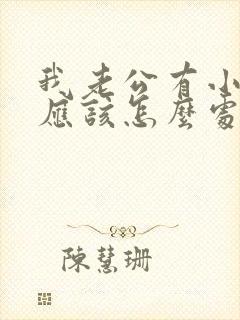 我老公有小
應該怎麼處
陳慧珊